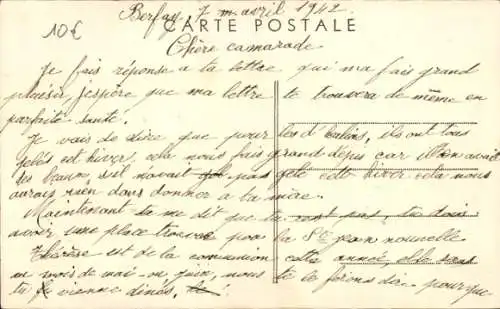 10€
Berfay, 7 avril 1942
CARTE POSTALE
Chère camarade
Je fais réponse a ta lettre qui ma fais grand
plaisir, j'espère que ma lettre te trouvera de même en
parfaite santé.
Je vais te dire que pour les dalhias, ils ont tous
gelés cet hiver, cela nous fais grand dépis car il en avait
des beaux, sil navait pas gelé cette hiver cela nous
aurais rien dans donner a ta mère.
Maintenant tu me dit que tu vont pas, tu dois
avoir une place trouvée pour la St Jean nouvelle
Thérèse est de la communion cette année, elle sans
au mois de mai ou juin, nous te le ferons dire pour que
tu vienne dinés.